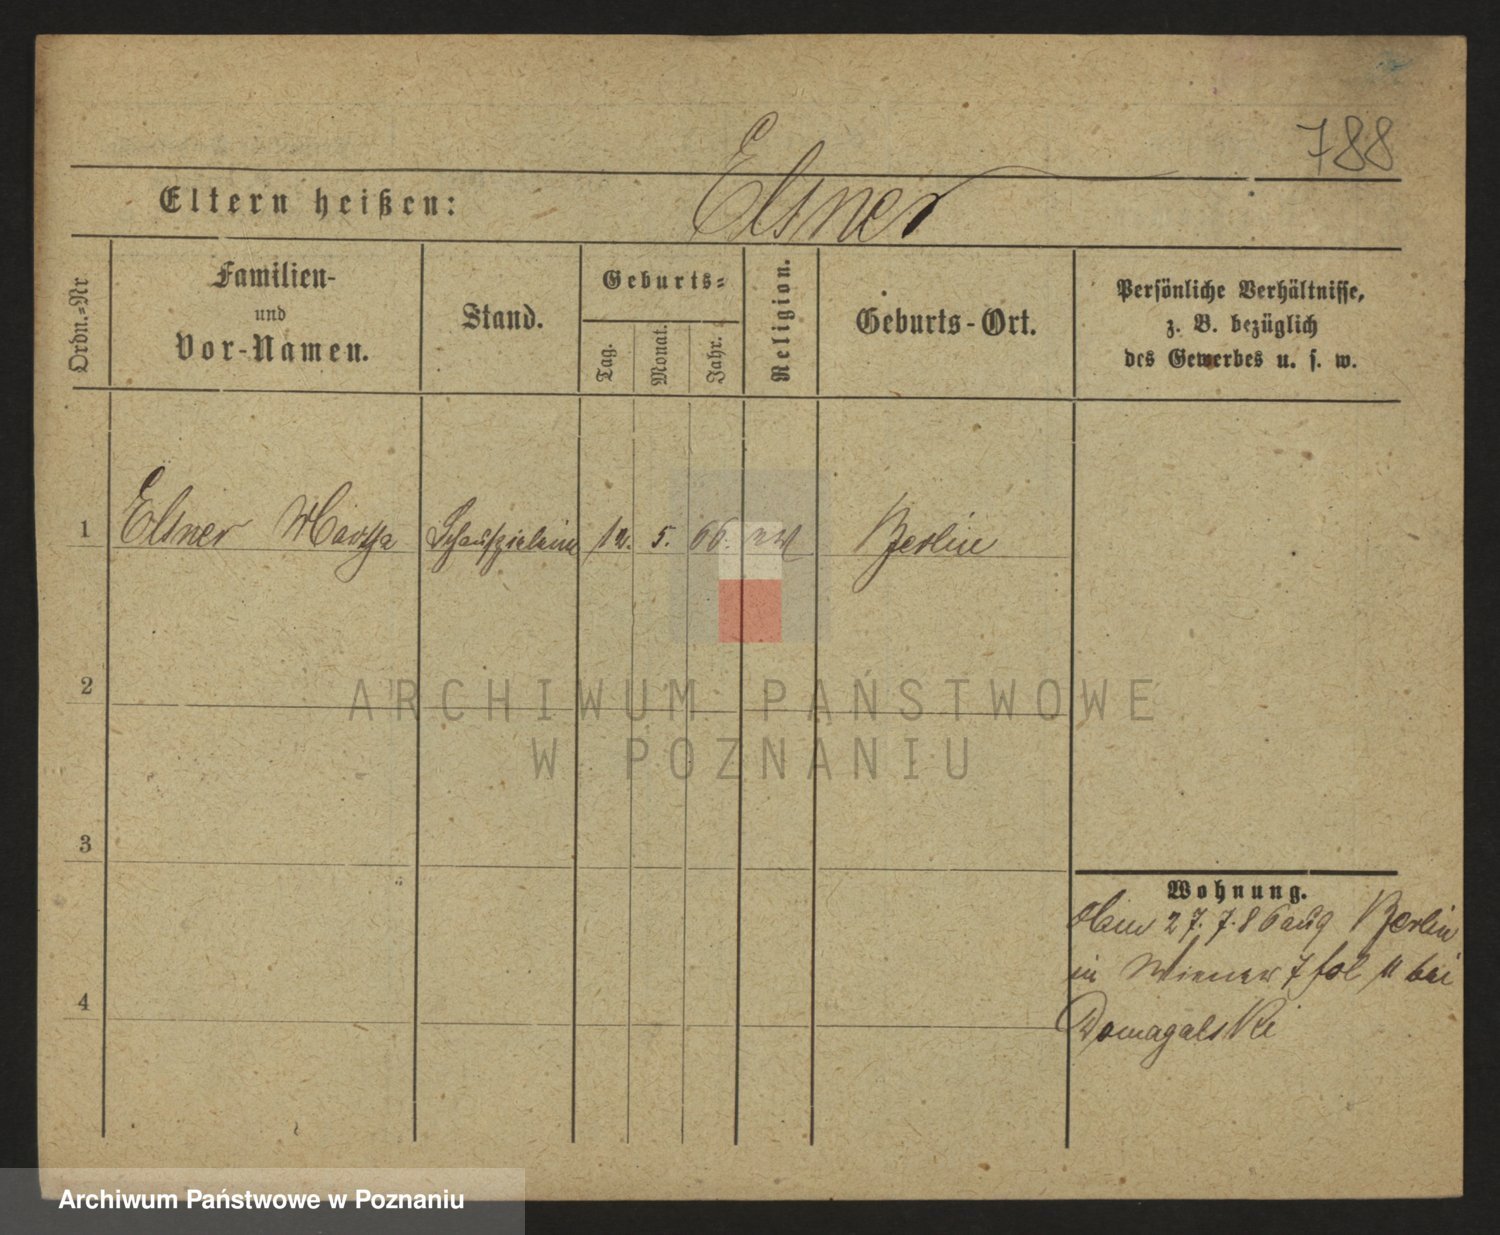 788
Eltern heißen: Elsner
Ordn.-Nr
Familien-
und
Vor-Namen.
Stand.
Geburts-
Tag.
Monat.
Jahr.
Religion.
Geburts-Ort.
Persönliche Verhältnisse,
z. B. bezüglich
des Gewerbes u. s. w.
1 Elsner Martha Schauspielerin 12. 5. 66. Berlin
2
ARCHIWUM PAŃSTWOWE
W POZNANIU
3
4
Wohnung.
27.7.86 aus Berlin
in Wiener 7 bei
Domagalski
Archiwum Państwowe w Poznaniu